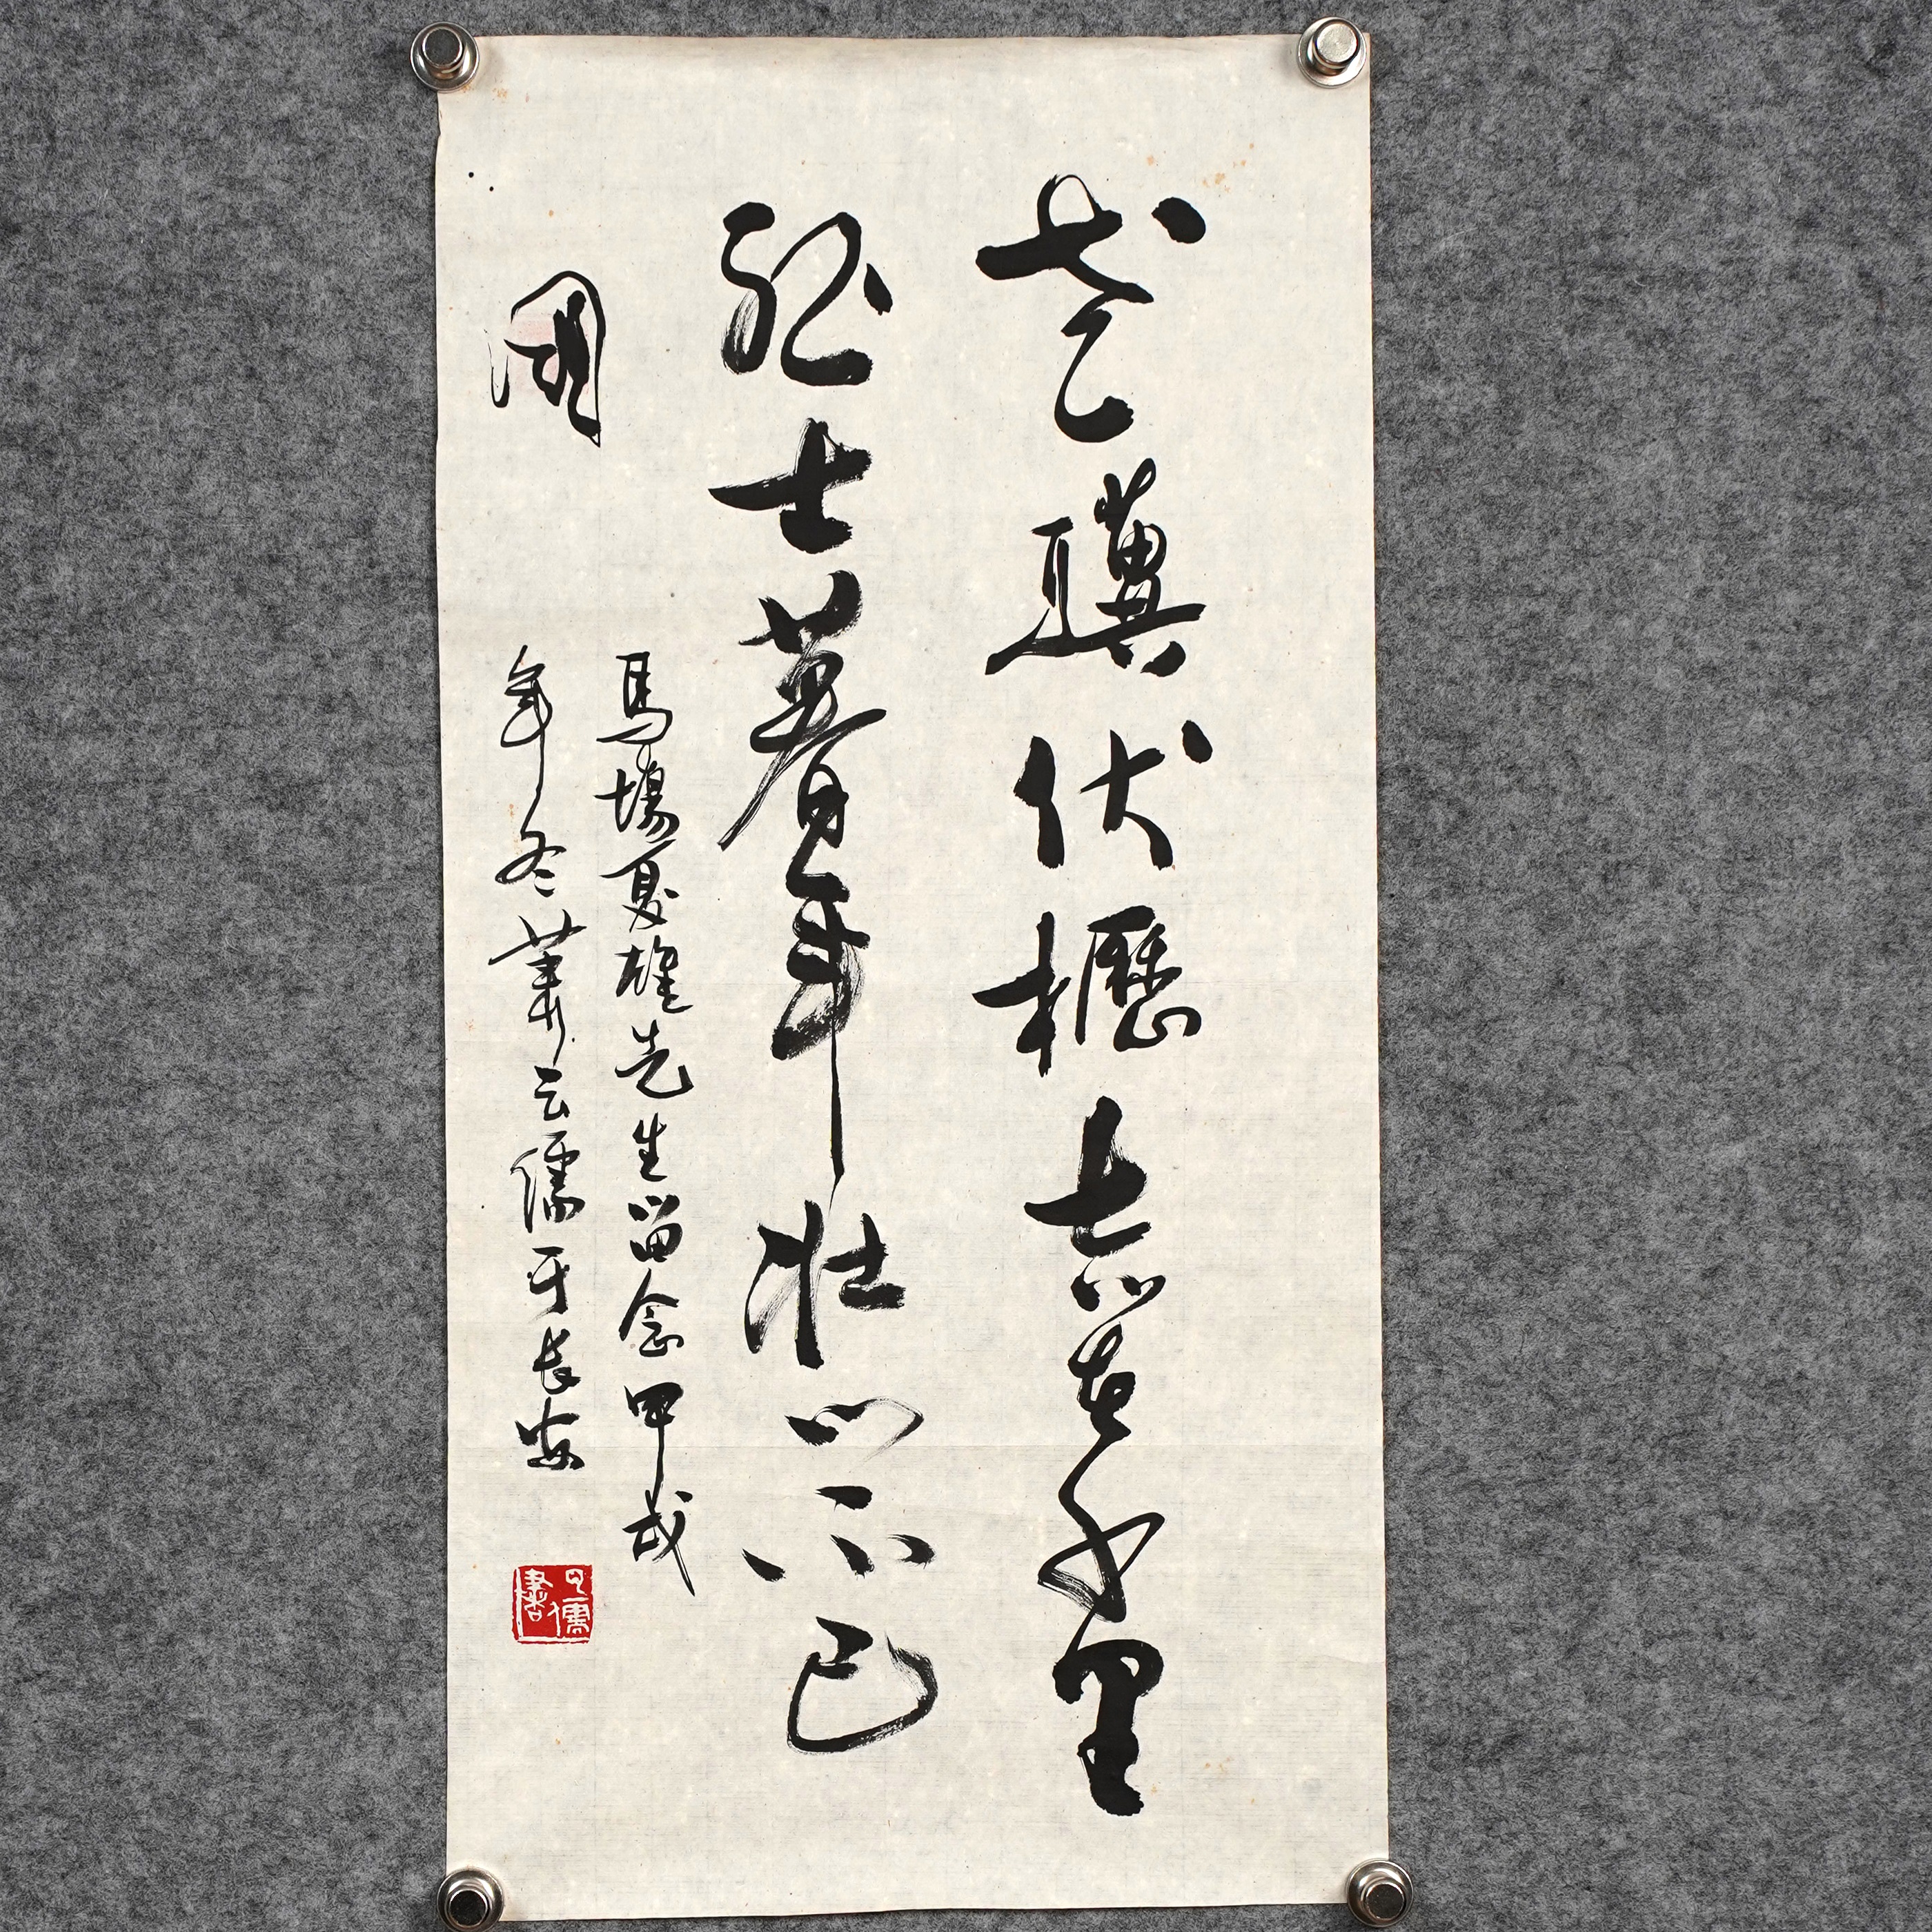 老驥伏櫪志在千里
烈士暮年壮心不已
馬場夏雄先生留念甲戌
年冬蕭云儒于長安
云儒
書